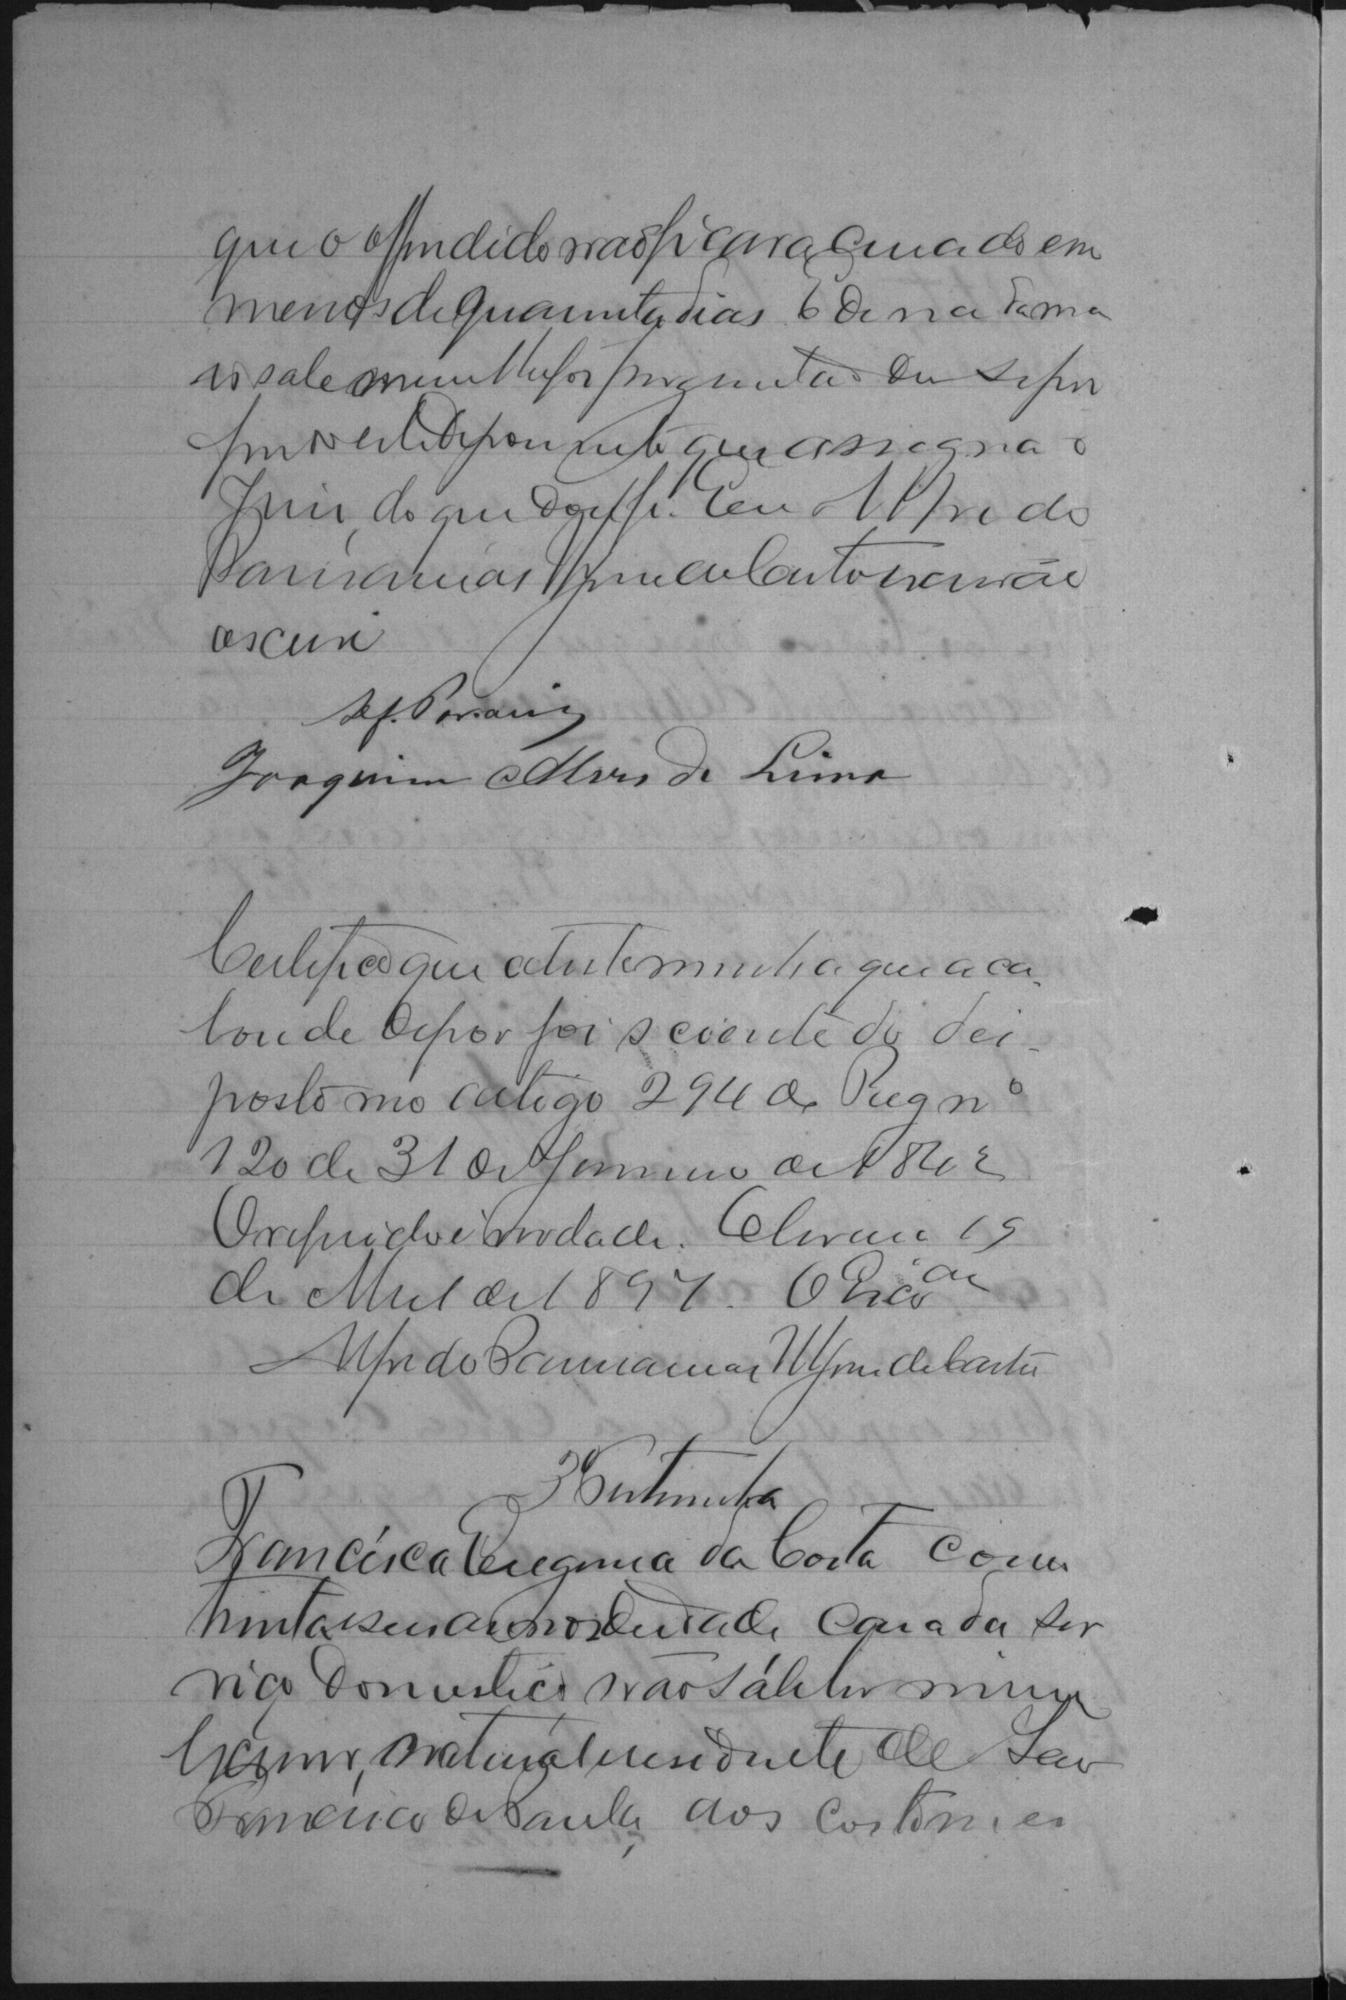 que o offendido não ficara curado em
menos de quarenta dias. E de nada ma
is sabe nem lhe foi preguntado deu se por
findo este depoimento que assigna o
Juiz, do que dou fé. Eu Alfredo
Paurianias de Castro escrivão
escrevi
Joaquim Alves de Lima
Certifico que a testemunha que aca
bou de depor foi sciente do dis
posto no artigo 294 do Reg nº
120 de 31 de Janeiro de 1842
O referido é verdade. 19
de Abril de 1897. O Escrivão
Alfredo de Castro
3ª Testemunha
Francisca Peregrina da Costa com
trinta e seis annos de idade, casada ser
viço domestico não sabe ler nem
escrever, natural e residente de Sam
Francisco de Paula, aos costumes